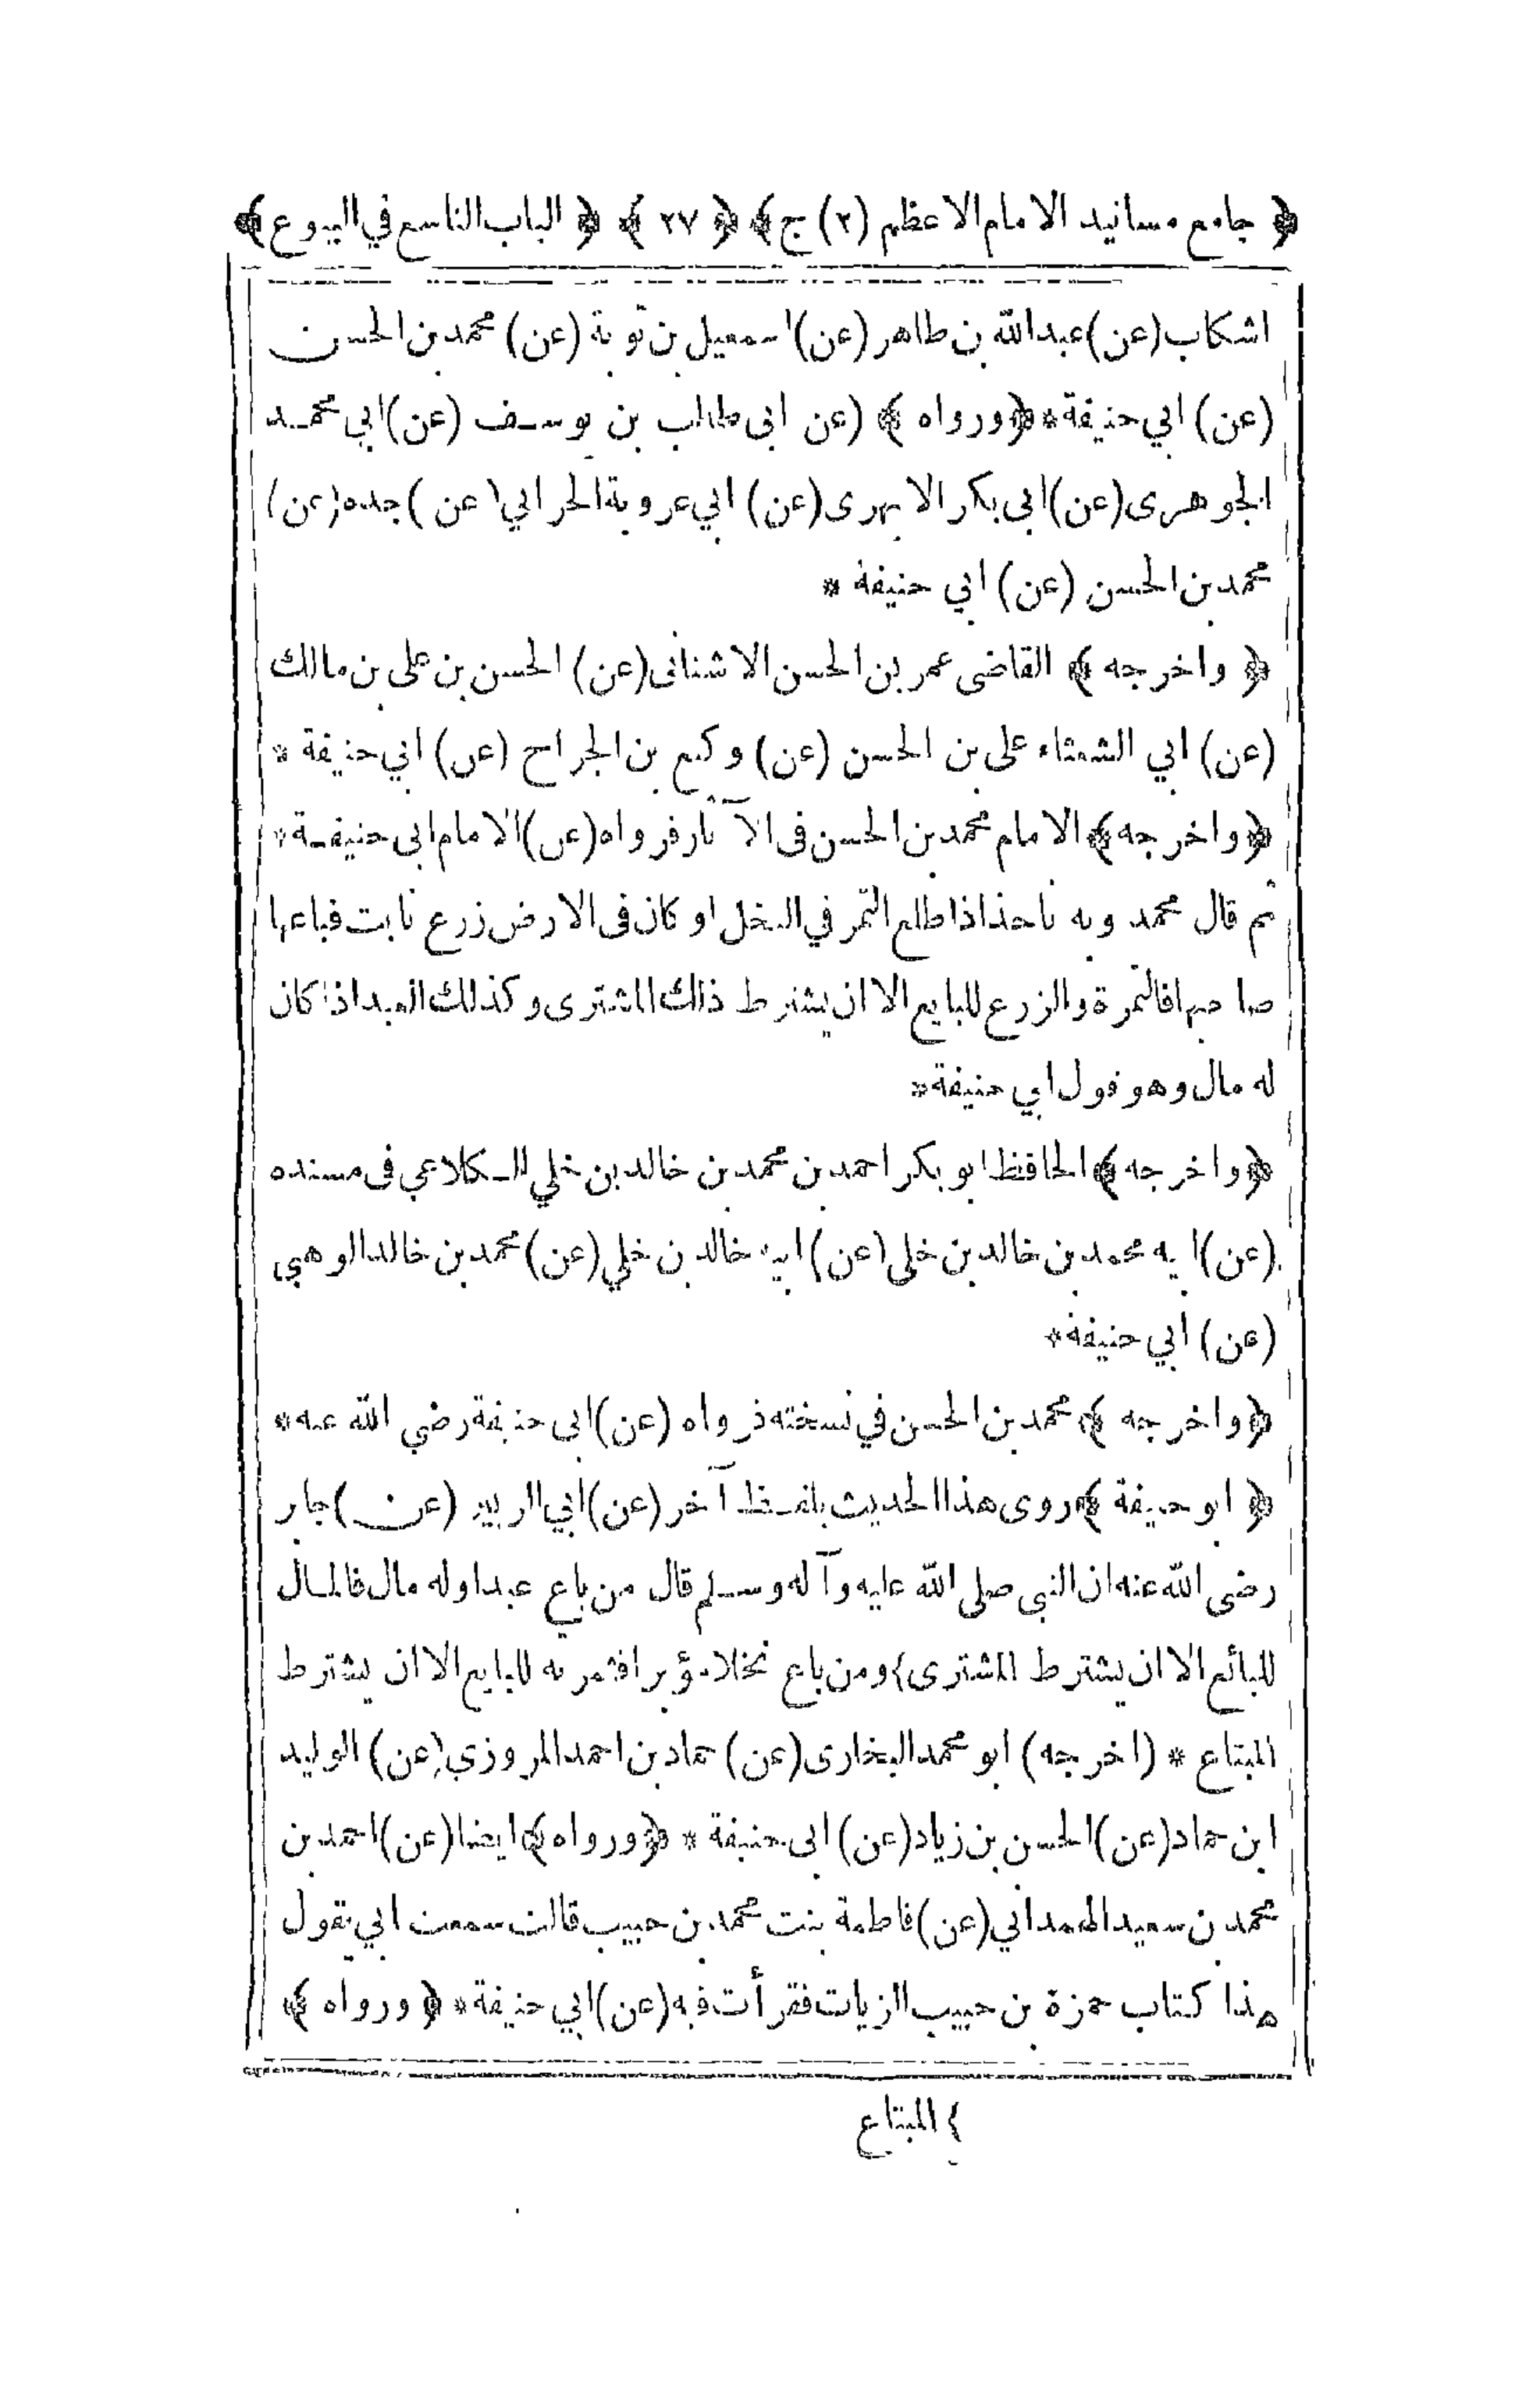 ﴿ جامع مسانيد الامام الاعظم (٢) ج﴾ ﴿ ٢٧ ﴾ ﴿ الباب التاسع في البيوع﴾
اشكاب (عن) عبدالله بن طاهر (عن) اسمعيل بن توبة (عن) محمد بن الحسن
(عن) ابي حنيفة * ﴿ورواه ﴾ (عن ابى طالب بن يوسف (عن) ابي محمد
الجوهرى (عن) ابى بكر الابهرى (عن) ابي عروبة الحراني (عن) جده (عن)
محمد بن الحسن (عن) ابي حنيفة *
﴿ واخرجه ﴾ القاضى عمر بن الحسن الاشنانى (عن) الحسن بن على بن مالك
(عن) ابي الشعثاء على بن الحسن (عن) وكيع بن الجراح (عن) ابي حنيفة *
﴿واخرجه﴾ الامام محمد بن الحسن فى الآثار فرواه (عن) الامام ابى حنيفة *
ثم قال محمد وبه ناخذ اذا طلع الثمر في النخل او كان فى الارض زرع نابت فباعها
صاحبها فالثمرة والزرع للبايع الا ان يشترط ذلك المشترى وكذلك العبد اذا كان
له مال وهو قول ابي حنيفة *
﴿واخرجه ﴾ الحافظ ابو بكر احمد بن محمد بن خالد بن خلي الكلاعي فى مسنده
(عن) ابيه محمد بن خالد بن خلى (عن) ابيه خالد بن خلي (عن) محمد بن خالد الوهبي
(عن) ابي حنيفة *
﴿واخرجه ﴾ محمد بن الحسن في نسخته فرواه (عن) ابى حنيفة رضي الله عنه *
﴿ ابو حنيفة ﴾ روى هذا الحديث بلفظ آخر (عن) ابي الزبير (عن) جابر
رضى الله عنه ان النبي صلى الله عليه وآله وسلم قال من باع عبدا وله مال فالمال
للبائع الا ان يشترط المشترى} ومن باع نخلا مؤبرا فثمرته للبايع الا ان يشترط
المبتاع * (اخرجه) ابو محمد البخارى (عن) حماد بن احمد المروزي (عن) الوليد
ابن حماد (عن) الحسن بن زياد (عن) ابى حنيفة * ﴿ورواه﴾ ايضا (عن) احمد بن
محمد بن سعيد الهمداني (عن) فاطمة بنت محمد بن حبيب قالت سمعت ابي يقول
هذا كتاب حمزة بن حبيب الزيات فقرأت فيه (عن) ابي حنيفة * ﴿ ورواه ﴾
} المبتاع